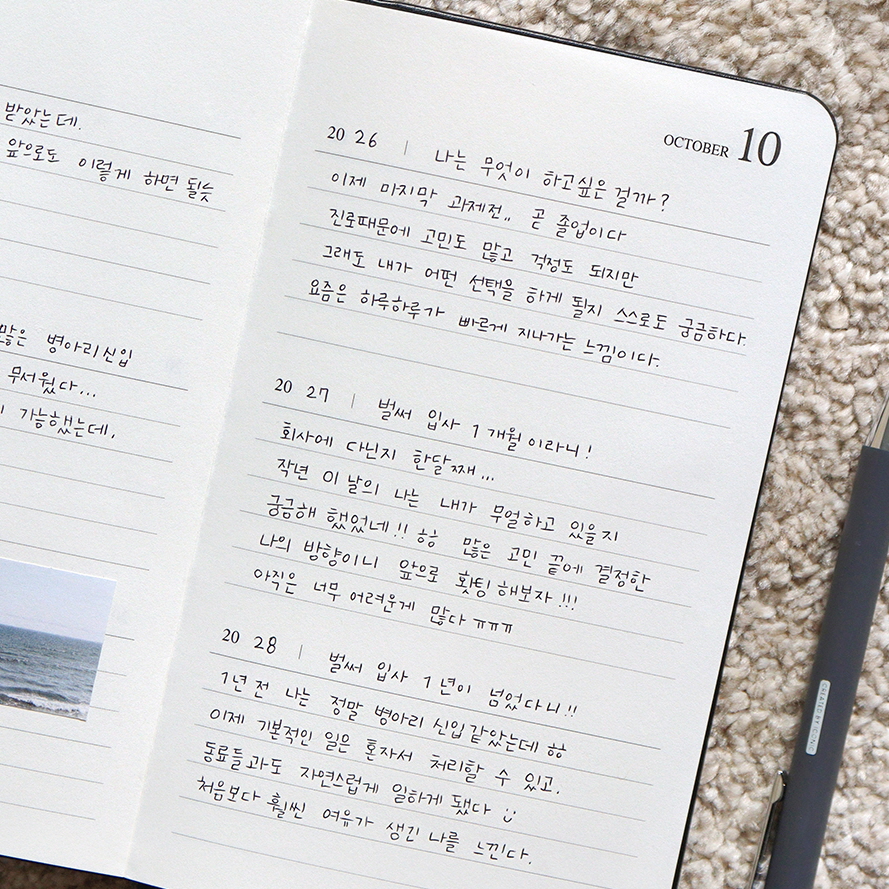 받았는데.
앞으로도 이렇게 하면 될듯
많은 병아리신입
무서웠다...
가능했는데,
OCTOBER 10
2026 | 나는 무엇이 하고싶은 걸까?
이제 마지막 과제전.. 곧 졸업이다
진로때문에 고민도 많고 걱정도 되지만
그래도 내가 어떤 선택을 하게 될지 스스로도 궁금하다.
요즘은 하루하루가 빠르게 지나가는 느낌이다.
2027 | 벌써 입사 1개월이라니!
회사에 다닌지 한달째...
작년 이날의 나는 내가 무얼하고 있을지
궁금해 했었네!! ㅎㅎ 많은 고민 끝에 결정한
나의 방향이니 앞으로 홧팅해보자!!!
아직은 너무 어려운게 많다ㅠㅠㅠ
2028 | 벌써 입사 1년이 넘었다니!!
1년전 나는 정말 병아리 신입같았는데 ㅎㅎ
이제 기본적인 일은 혼자서 처리할 수 있고,
동료들과도 자연스럽게 일하게 됐다 :)
처음보다 훨씬 여유가 생긴 나를 느낀다.
CREATED BY ICONIC